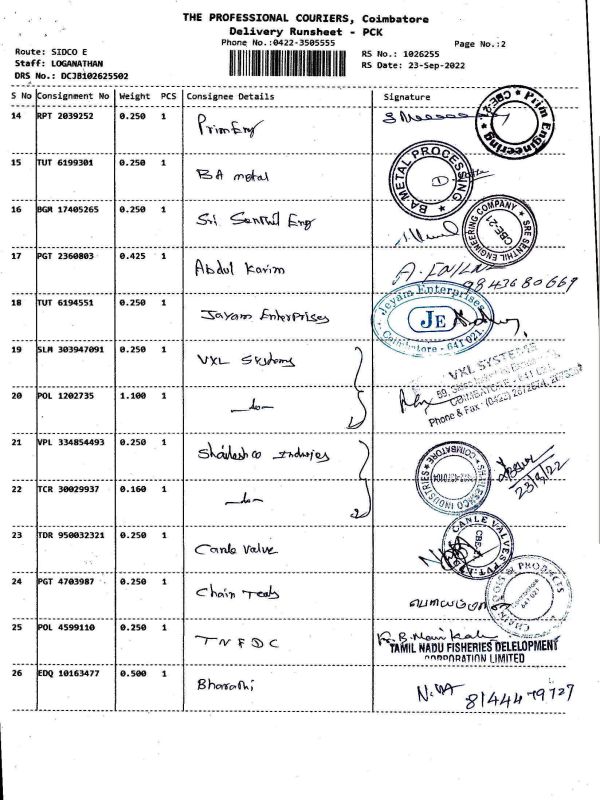 THE PROFESSIONAL COURIERS, Coimbatore
Delivery Runsheet - PCK
Phone No.:0422-3505555
Page No.:2
Route: SIDCO E
Staff: LOGANATHAN
DRS No.: DCJB102625502
RS No.: 1026255
RS Date: 23-Sep-2022
S No Consignment No Weight PCS Consignee Details Signature
14 RPT 2039252 0.250 1 Prim Eng
Prim Engineering ★ CBE-21 ★
15 TUT 6199301 0.250 1 BA metal
BA METAL PROCESSING ★
16 BGM 17405265 0.250 1 Sri Senthil Eng
SRE SENTHIL ENGINEERING COMPANY ★ CBE-21
17 PGT 2360803 0.425 1 Abdul Karim
9843680669
18 TUT 6194551 0.250 1 Jayam Enterprises
Jeyam Enterprises JE Coimbatore - 641 021.
19 SLM 303947091 0.250 1 VXL Systems
VXL SYSTEMS
COIMBATORE - 641 021
Phone & Fax : (0422) 2672674,
20 POL 1202735 1.100 1 -do-
21 VPL 334854493 0.250 1 Shaileshco Industries
SHAILESHCO INDUSTRIES ★ COIMBATORE
23/9/22
22 TCR 30029937 0.160 1 -do-
23 TDR 950032321 0.250 1 Canle Valve
CANLE VALVES PVT.
24 PGT 4703987 0.250 1 Chain Tools
CHAIN TOOLS & PRODUCTS
25 POL 4599110 0.250 1 TNFDC
TAMIL NADU FISHERIES DELELOPMENT
CORPORATION LIMITED
26 EDQ 10163477 0.500 1 Bharathi
8144479727